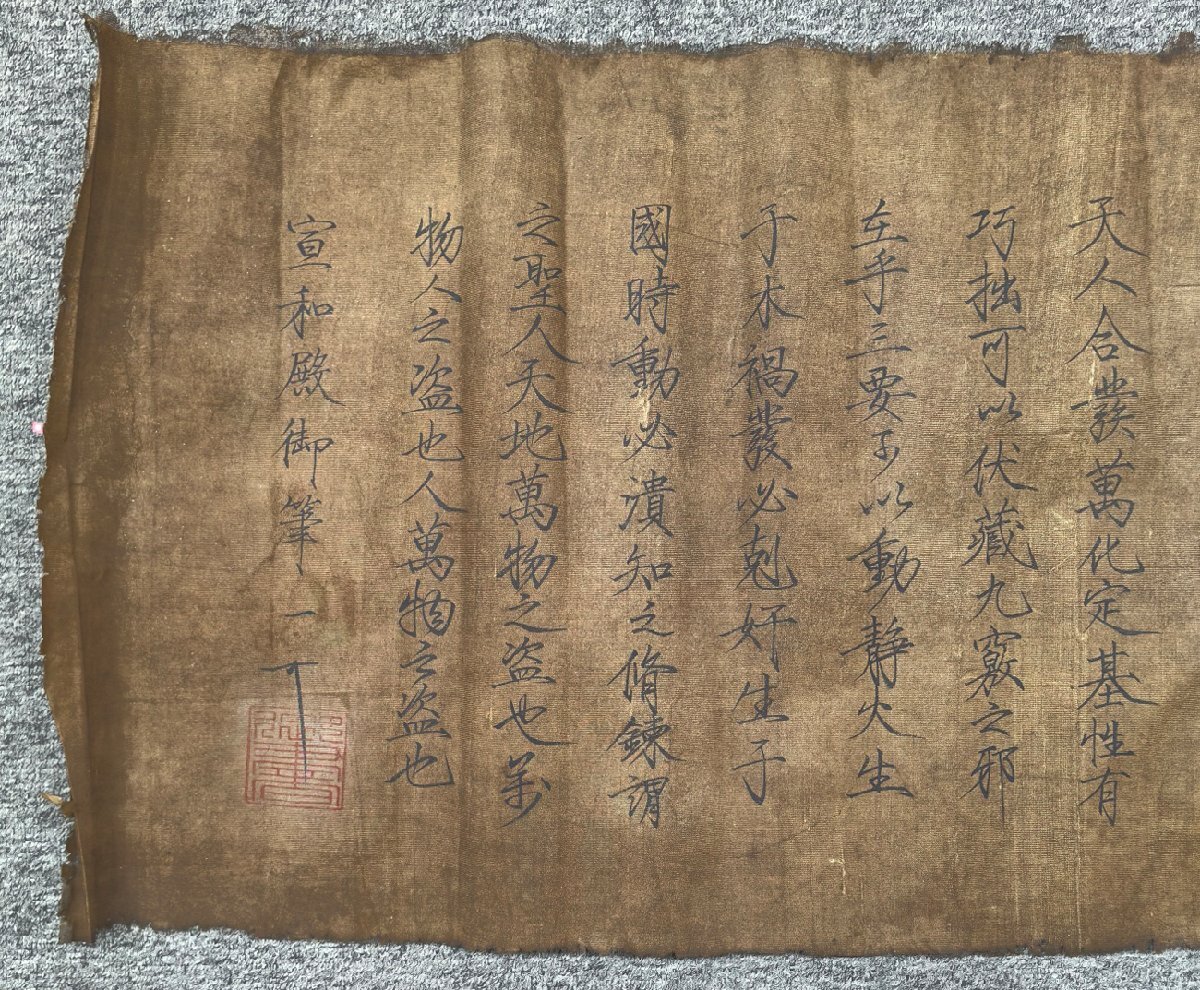 天人合發萬化定基性有
巧拙可以伏藏九竅之邪
在乎三要可以動靜火生
于木禍發必剋奸生于
國時動必潰知之脩鍊謂
之聖人天地萬物之盗也萬
物人之盗也人萬物之盗也
宣和殿御筆
御書